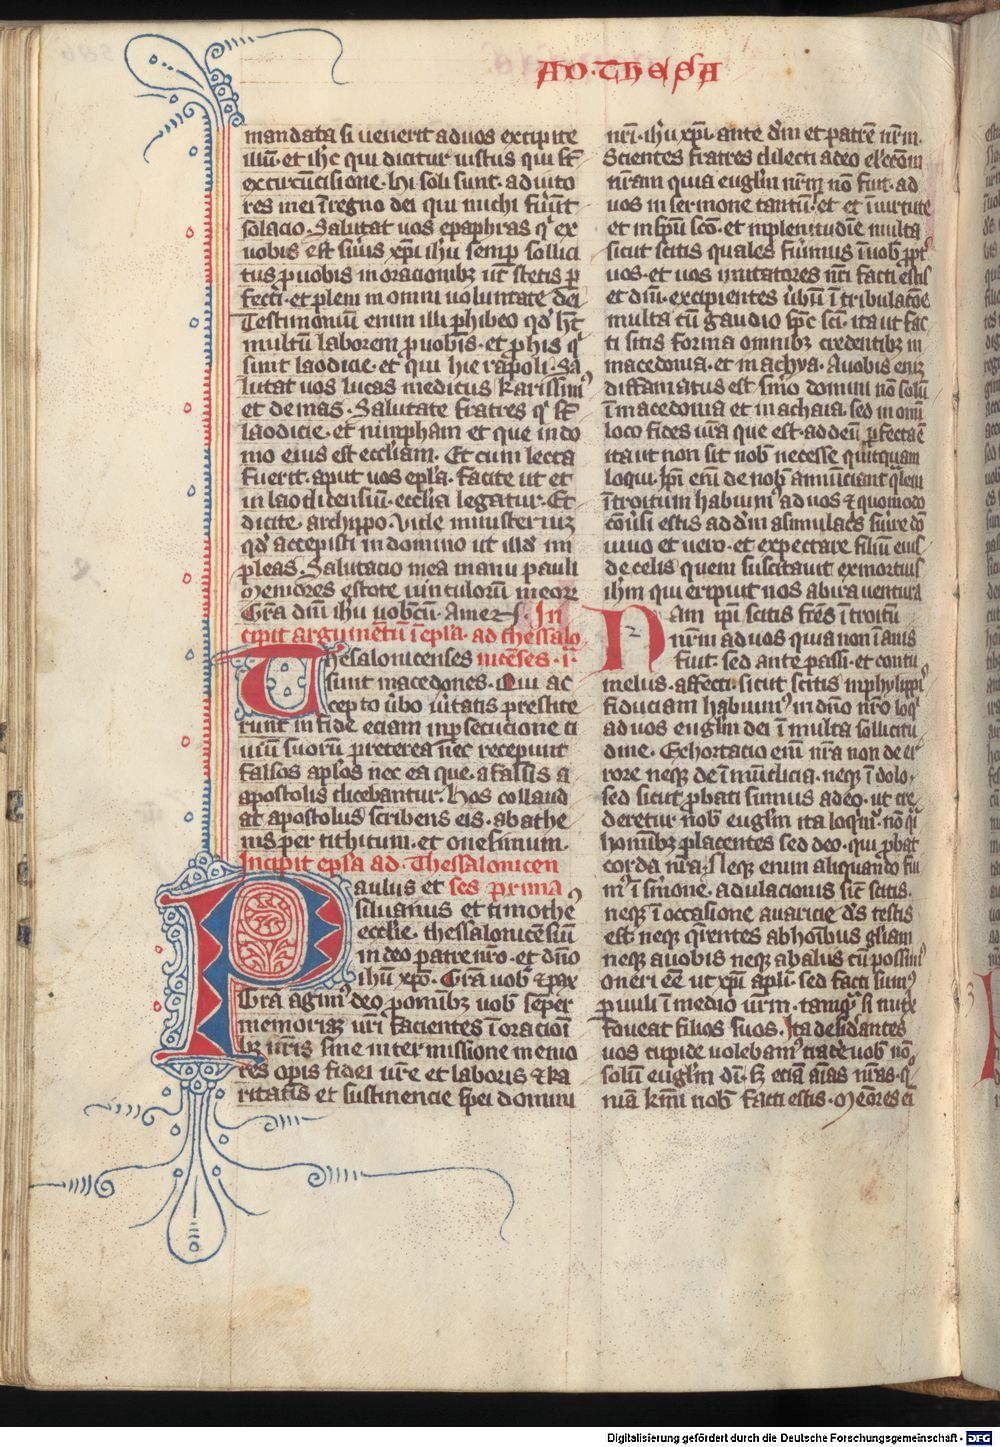 AD·THESA
mandata si uenerit ad uos excipite
illū·et ihc qui dicitur iustus qui st̄
ex circūcisione· hi soli sunt· adiuto
res mei ī regno dei qui michi fūūt
solacio. Salutat uos epaphras q' ex
uobis est s̄uus xp̄i ihū semp̄ sollici
tus p̄ uobis in oracionibz ut stetis p̄
fecti· et pleni in omni uoluntate dei
Testimoniū enim illi p̄hibeo qd' h̄t
multū laborem p̄ uobis· et p̄ his q'
sunt laodicie· et qui hierapoli. Sa
lutat uos lucas medicus karissim'
et demas· Salutate fratres q' st̄
laodicie· et nimpham et que in do
mo eius est eccliam. Et cum lecta
fuerit· aput uos epl̄a· facite ut et
in laodicensiū· ecclia legatur. Et
dicite archippo. Vide ministeriuz
qd' accepisti in domino ut illd' im
pleas. Salutacio mea manu pauli
Memores estote uinculorū meorz
Gr̄a dn̄i ihū uobcū· Amen In
cipit argumētū ī epl̄a· ad thessalo
Thesalonicenses nicēses· i·
sunt macedones· Qui ac
cepto ūbo ūitatis prestite
runt in fide eciam in p̄secucione ci
uiū suorū preterea nec receperūt
falsos apl̄os nec ea que· a falsis a
apostolis dicebantur. Hos collaud
at apostolus scribens eis· ab athe
nis per tithitum· et onesimum.
Incipit epl̄a ad· Thessalonicen
Paulus et ses prima
siluanus et timothe'
ecclie· thessalonicēsiū
in deo patre nr̄o· et dn̄o
ihū xp̄o· Gr̄a uob' & pax
Gr̄a agim' deo p̄ omnibz uob' semper
memoriaz ur̄i facientes ī oracioī
bz nr̄is sine intermissione memo
res opis fidei ur̄e et laboris & ka
ritatis et sustinencie spei domini
nr̄i· ihū xp̄i· ante dm̄ et patrē nr̄m.
Scientes fratres dilecti a deo elēccōm
ur̄am quia euglm̄ nr̄m nō fuit· ad
uos in sermone tantū· et et ī uirtute
et in sp̄u sc̄o· et in plenitudīe multa
sicut scitis quales fūimus ī uob' ppt'
uos· et uos imitatores nr̄i facti estis
et dn̄i· excipientes ūbū ī tribulacōe
multa cū gaudio sp̄c sc̄i· ita ut fac
ti sitis forma omnibz credentibz in
macedonia· et in achya· A uobis enīz
diffamatus est s̄mo domini nō solū
ī macedonia et in achaia· sed in omī
loco fides ur̄a que est· ad deū p̄fecta ē
ita ut non sit nob' necesse quitquam
loqui. Ip̄i enī de nob' annūciant q̄lem
īttroitum habuim' ad uos & quomodo
cōuersi estis ad dm̄ a simulacr̄s s̄uire dō
uiuo et uero· et expectare filiū eius
de celis quem suscitauit ex mortuis
ihm̄ qui eripuit nos ab ira uentura
2
Nam ip̄i scitis frēs ī troitū
nr̄m ad uos quia non īanis
fuit· sed ante passi· et contu
melus· affecti· sicut scitis in phylippi'
fiduciam habuim' in dn̄o nr̄o loq'
ad uos euglm̄ dei ī multa sollicitu
dine· Exhortacio enī nr̄a non de er
rore neqz de īmūdicia· neqz ī dolo·
sed sicut p̄bati sumus a deo· ut cre
deretur nob' euglm̄ ita loq̄m'· nō q̄i
hominbz placentes sed deo· qui p̄bat
corda nr̄a· Neqz enim aliquando fui
m' ī s̄mone· adulacionis sicut scitis·
neqz ī occasione auaricie ds̄ testis
est· neqz q̄rentes ab hoībus gliam
neqz a uobis neqz ab alüs cū possim'
oneri eē ut xp̄i apl̄i· sed facti sum'
p̄uuli ī medio ur̄m· tamq̄ si nutx
foueat filios suos· Ita desid'antes
uos cupide uolebam' trade uob' nō
solū euglm̄ dī· sz eciā aīas nr̄as· q̄
niā kmī nob' facti estis· Mēores eī
Digitalisierung gefördert durch die Deutsche Forschungsgemeinschaft - DFG